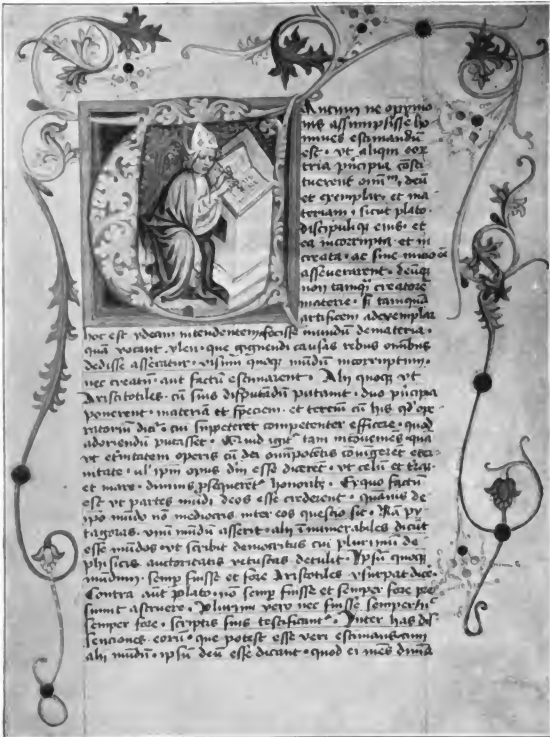 Antum ne oppinio
nis assumpsisse ho
mines estimandū
est · vt aliqui eoꝝ
tria pncipia cōsti
tuerent omīm deū
et exemplar · et ma
teriam · sicut plato ·
discipuliqꝫ eius · et
ea incorrupta · et in
creata · ac sine inicio
asseuerarent · deūqꝫ
non tamqꝫ creatorē
materie · sꝫ tamquā
artificem ad exemplar
hoc est ydeam intendentem fecisse mundū de materia ·
quā vocant ylen · que gignendi causas rebus omībus
dedisse asseratur · ipsum quoqꝫ mūdū incorruptum ·
nec creatū aut factū estimarent · Alij quoqꝫ vt
Aristotiles · cū suis disputādū putauit · duo pncipia
ponerent · materiā et speciem · et terciū cū his qd ope
ratoriū dicit · cui suppeteret competenter efficere · quod
adoriendū putasset · Quid igit tam incōueniēs quā
vt et̄nitatem operis cū dei omnipotētis cōiūgeret eter
nitate · ul ipm opus dm̄ esse diceret · vt celū et t̄ram
et mare · diuinis psequeret honoribꝫ · Ex quo factū
est vt partes mūdi deos esse crederent · quāuis de
ipo mūdo nō mediocris inter eos questio sit · Nā py
tagoras · vnū mūdū asserit · alij īnumerabiles dicūt
esse mūdos · vt scribit democritus cui plurimū de
phisicis auctoritatis vetustas detulit · Ipsū quoqꝫ
mūdum · semp fuisse et fore Aristotiles vsurpat dicē
Contra aūt plato · nō semp fuisse et semper fore pre
sumit astruere · Plurimi vero nec fuisse semper nec
semper fore · scriptis suis testificant · Inter has dis
sensiones eorū · que potest esse veri estimatio cum
alij mūdū · ipsū deū esse dicant · quod ei mēs diuīa